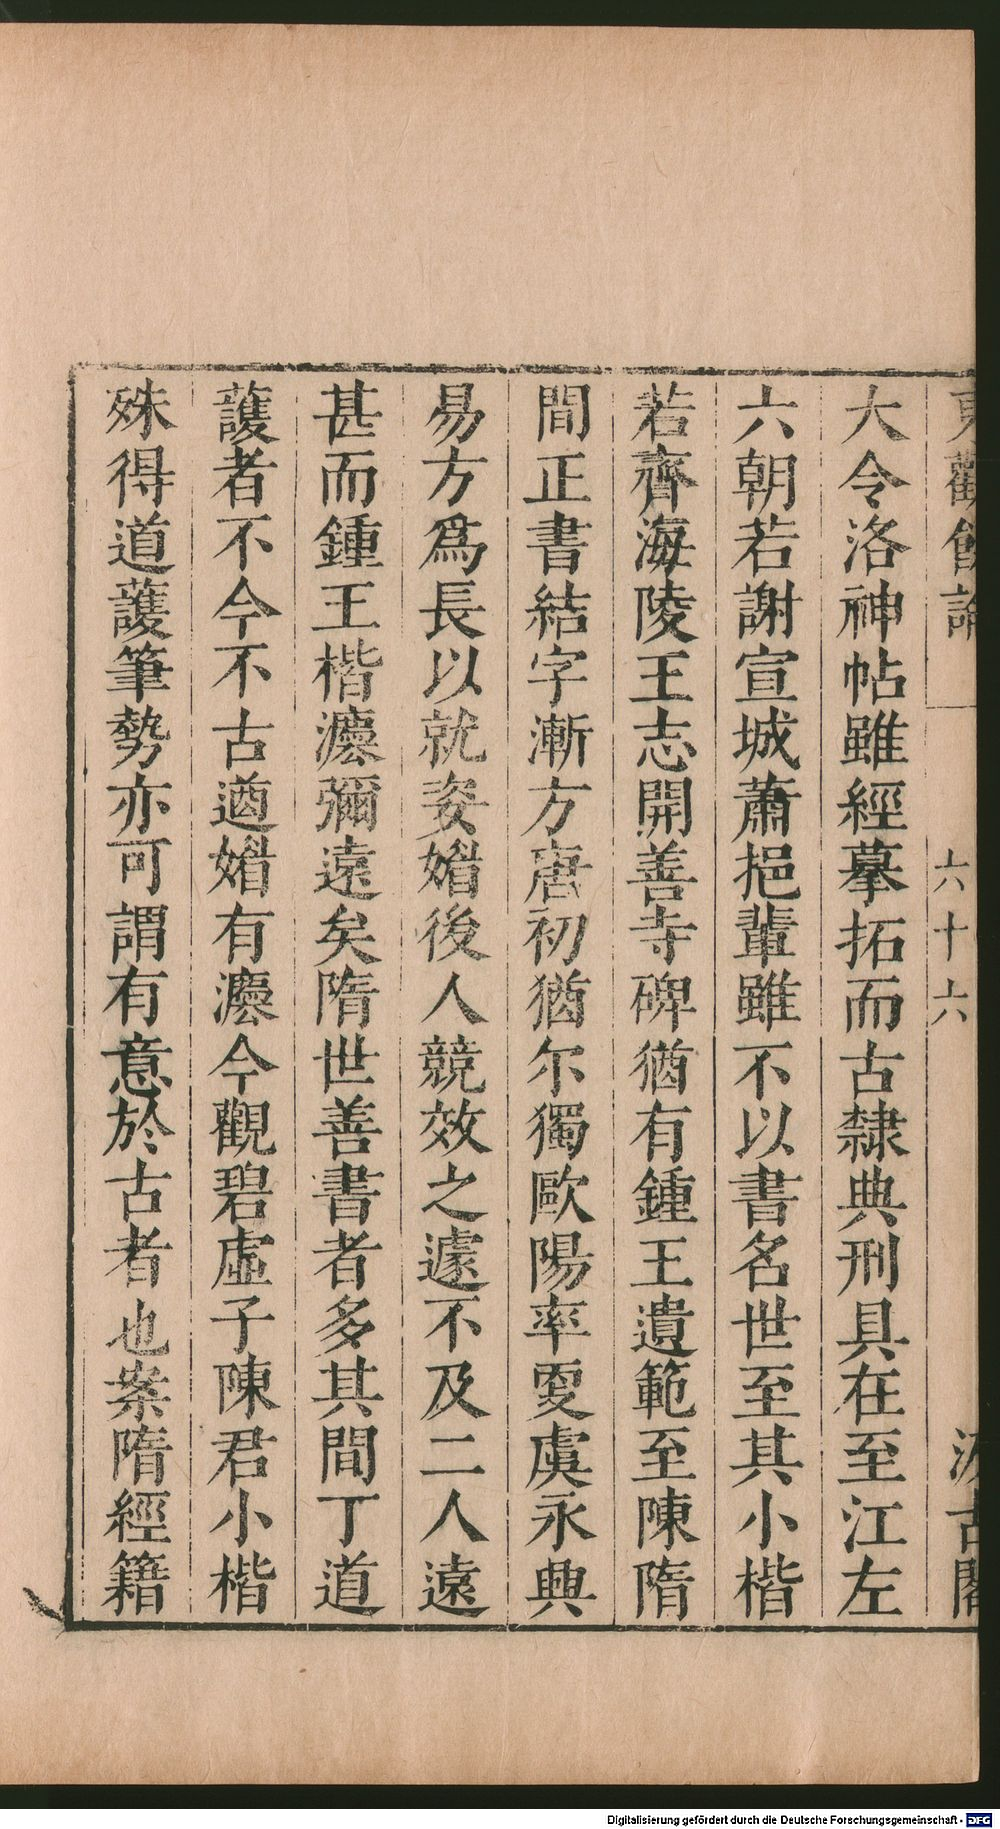 東觀餘論
六十六
汲古閣
大令洛神帖雖經摹拓而古隸典刑具在至江左
六朝若謝宣城蕭挹輩雖不以書名世至其小楷
若齊海陵王志開善寺碑猶有鍾王遺範至陳隋
間正書結字漸方唐初猶尒獨歐陽率更虞永興
易方爲長以就姿媚後人競效之遽不及二人遠
甚而鍾王楷灋彌遠矣隋世善書者多其間丁道
護者不今不古遒媚有灋今觀碧虛子陳君小楷
殊得道護筆勢亦可謂有意於古者也案隋經籍
Digitalisierung gefördert durch die Deutsche Forschungsgemeinschaft - DFG